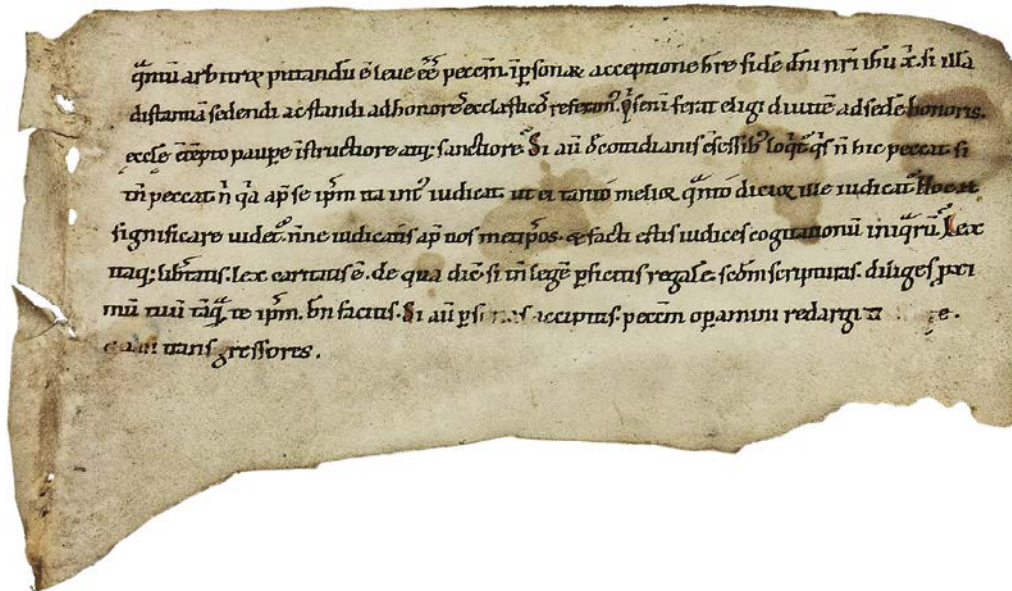 q̃ntū arbitror putandū ē leue ēē peccm̄ ip̄sonaꝝ acceptione hr̄e fidē dn̄i nr̄i ihū x̄. si illā
distantiā sedendi ac standi ad honorē ecclasticõ referim᷒. q̇senī ferat eligi diuitē ad sedē honoris.
eccl̄e ctēpto paupe īstructiore atq; sanctiore᷒ Si aū d̄ cotidianis csessib᷒ loq̇t᷒ q̇s n̄ hic peccat si
tn̄ peccat n̄ q̇a ap̄ se ip̄m ita int᷒ iudicat ut ei tanto melior q̃nto dicior ille iudicat᷒ Hoc eī
significare uidet᷒. n̄ne iudicatis ap̄ uos metip̄os. & facti estis iudices cogitationū iniq̃rū᷒ Lex
itaq; lib̄tatis. lex caritatis ē. de qua dic̄ si tn̄ legē p̄ficitis regalē. scdm̄ scripturas. diliges p̄xi
mū tuū tāq̃ te ip̄m. bn̄ facitis. Si aū p̄sonas accipitis. peccm̄ operamini redarguti
transgressores.